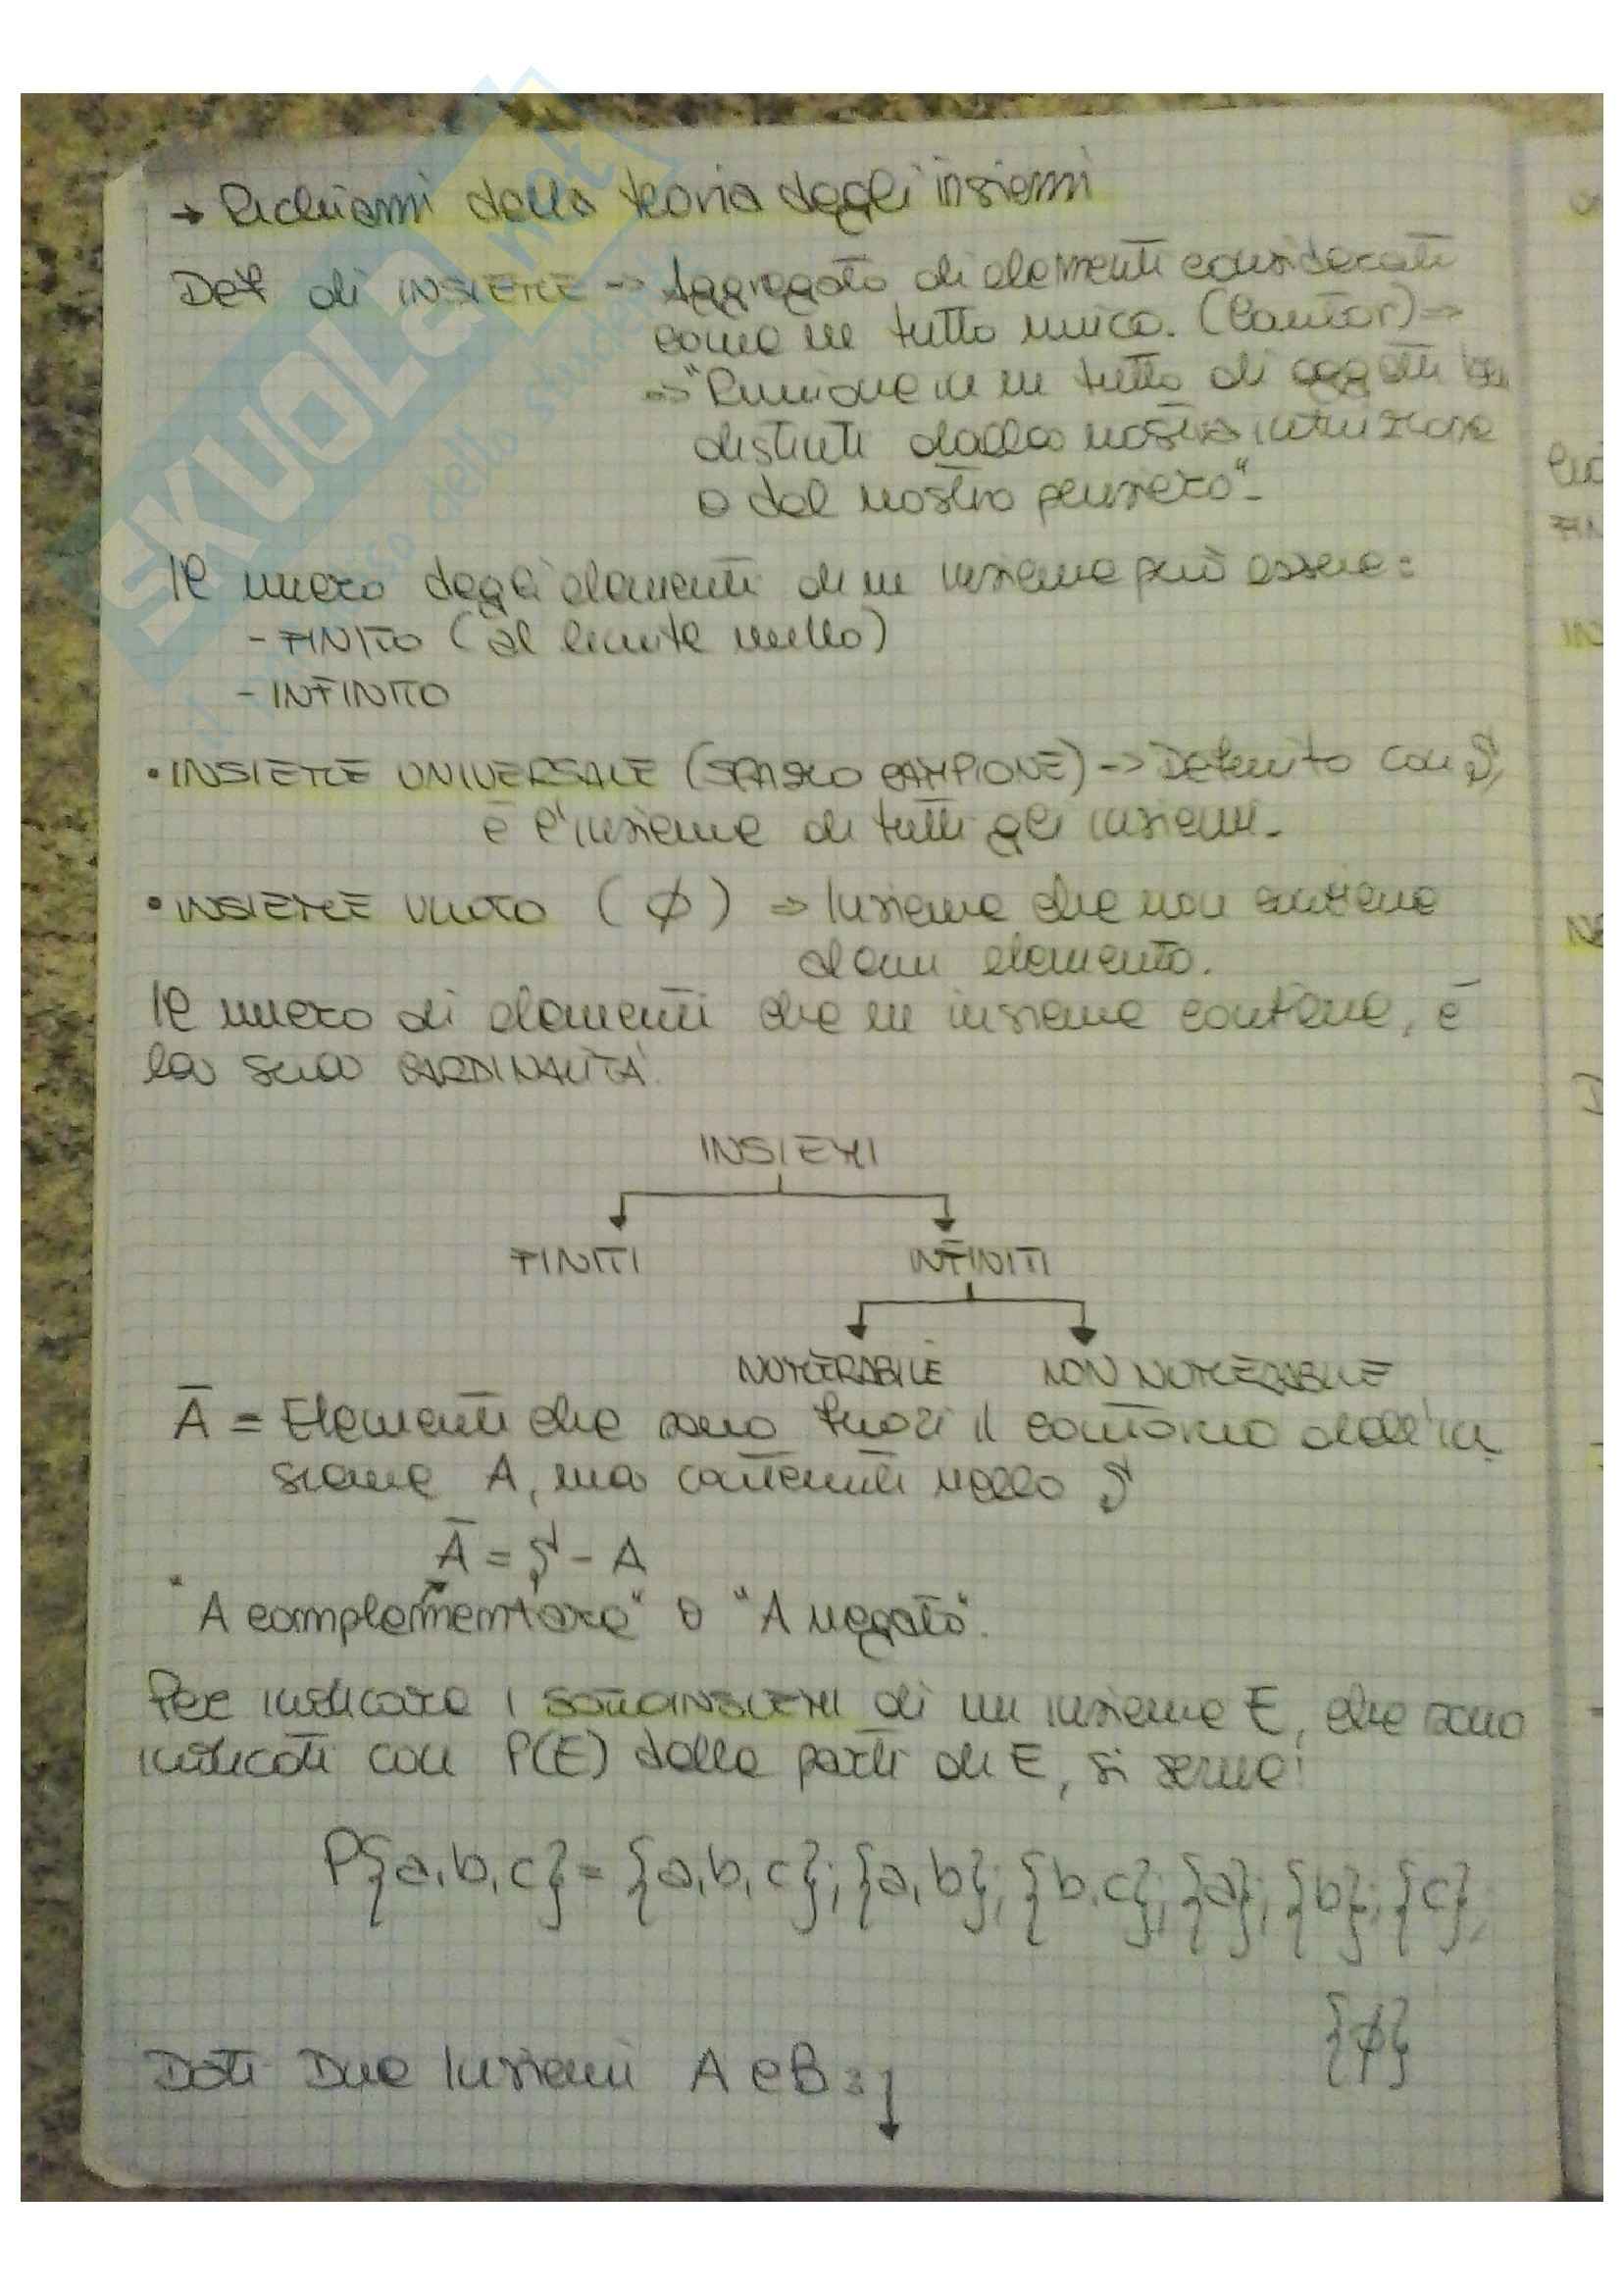 → Richiami della teoria degli insiemi
Def di INSIEME → Aggregato di elementi considerati
come un tutto unico. (Cantor) ⇒
⇒ "Riunione in un tutto di oggetti ben
distinti dalla nostra intuizione
o dal nostro pensiero".
Il numero degli elementi di un insieme può essere:
- FINITO (al limite nullo)
- INFINITO
• INSIEME UNIVERSALE (SPAZIO CAMPIONE) → Definito con S,
è l'insieme di tutti gli insiemi.
• INSIEME VUOTO (ϕ) ⇒ Insieme che non contiene
alcun elemento.
Il numero di elementi che un insieme contiene, è
la sua CARDINALITÀ.
INSIEMI
FINITI INFINITI
NUMERABILE NON NUMERABILE
Ā = Elementi che sono fuori il contorno dell'in
sieme A, ma contenuti nello S
Ā = S - A
"A complementare" o "A negato".
Per indicare i SOTTOINSIEMI di un insieme E, che sono
indicati con P(E) delle parti di E, si scrive:
P{a,b,c} = {a,b,c}; {a,b}; {b,c}; {a}; {b}; {c};
{ϕ}
Dati Due Insiemi A e B:
SKUOLA.net
dello studente